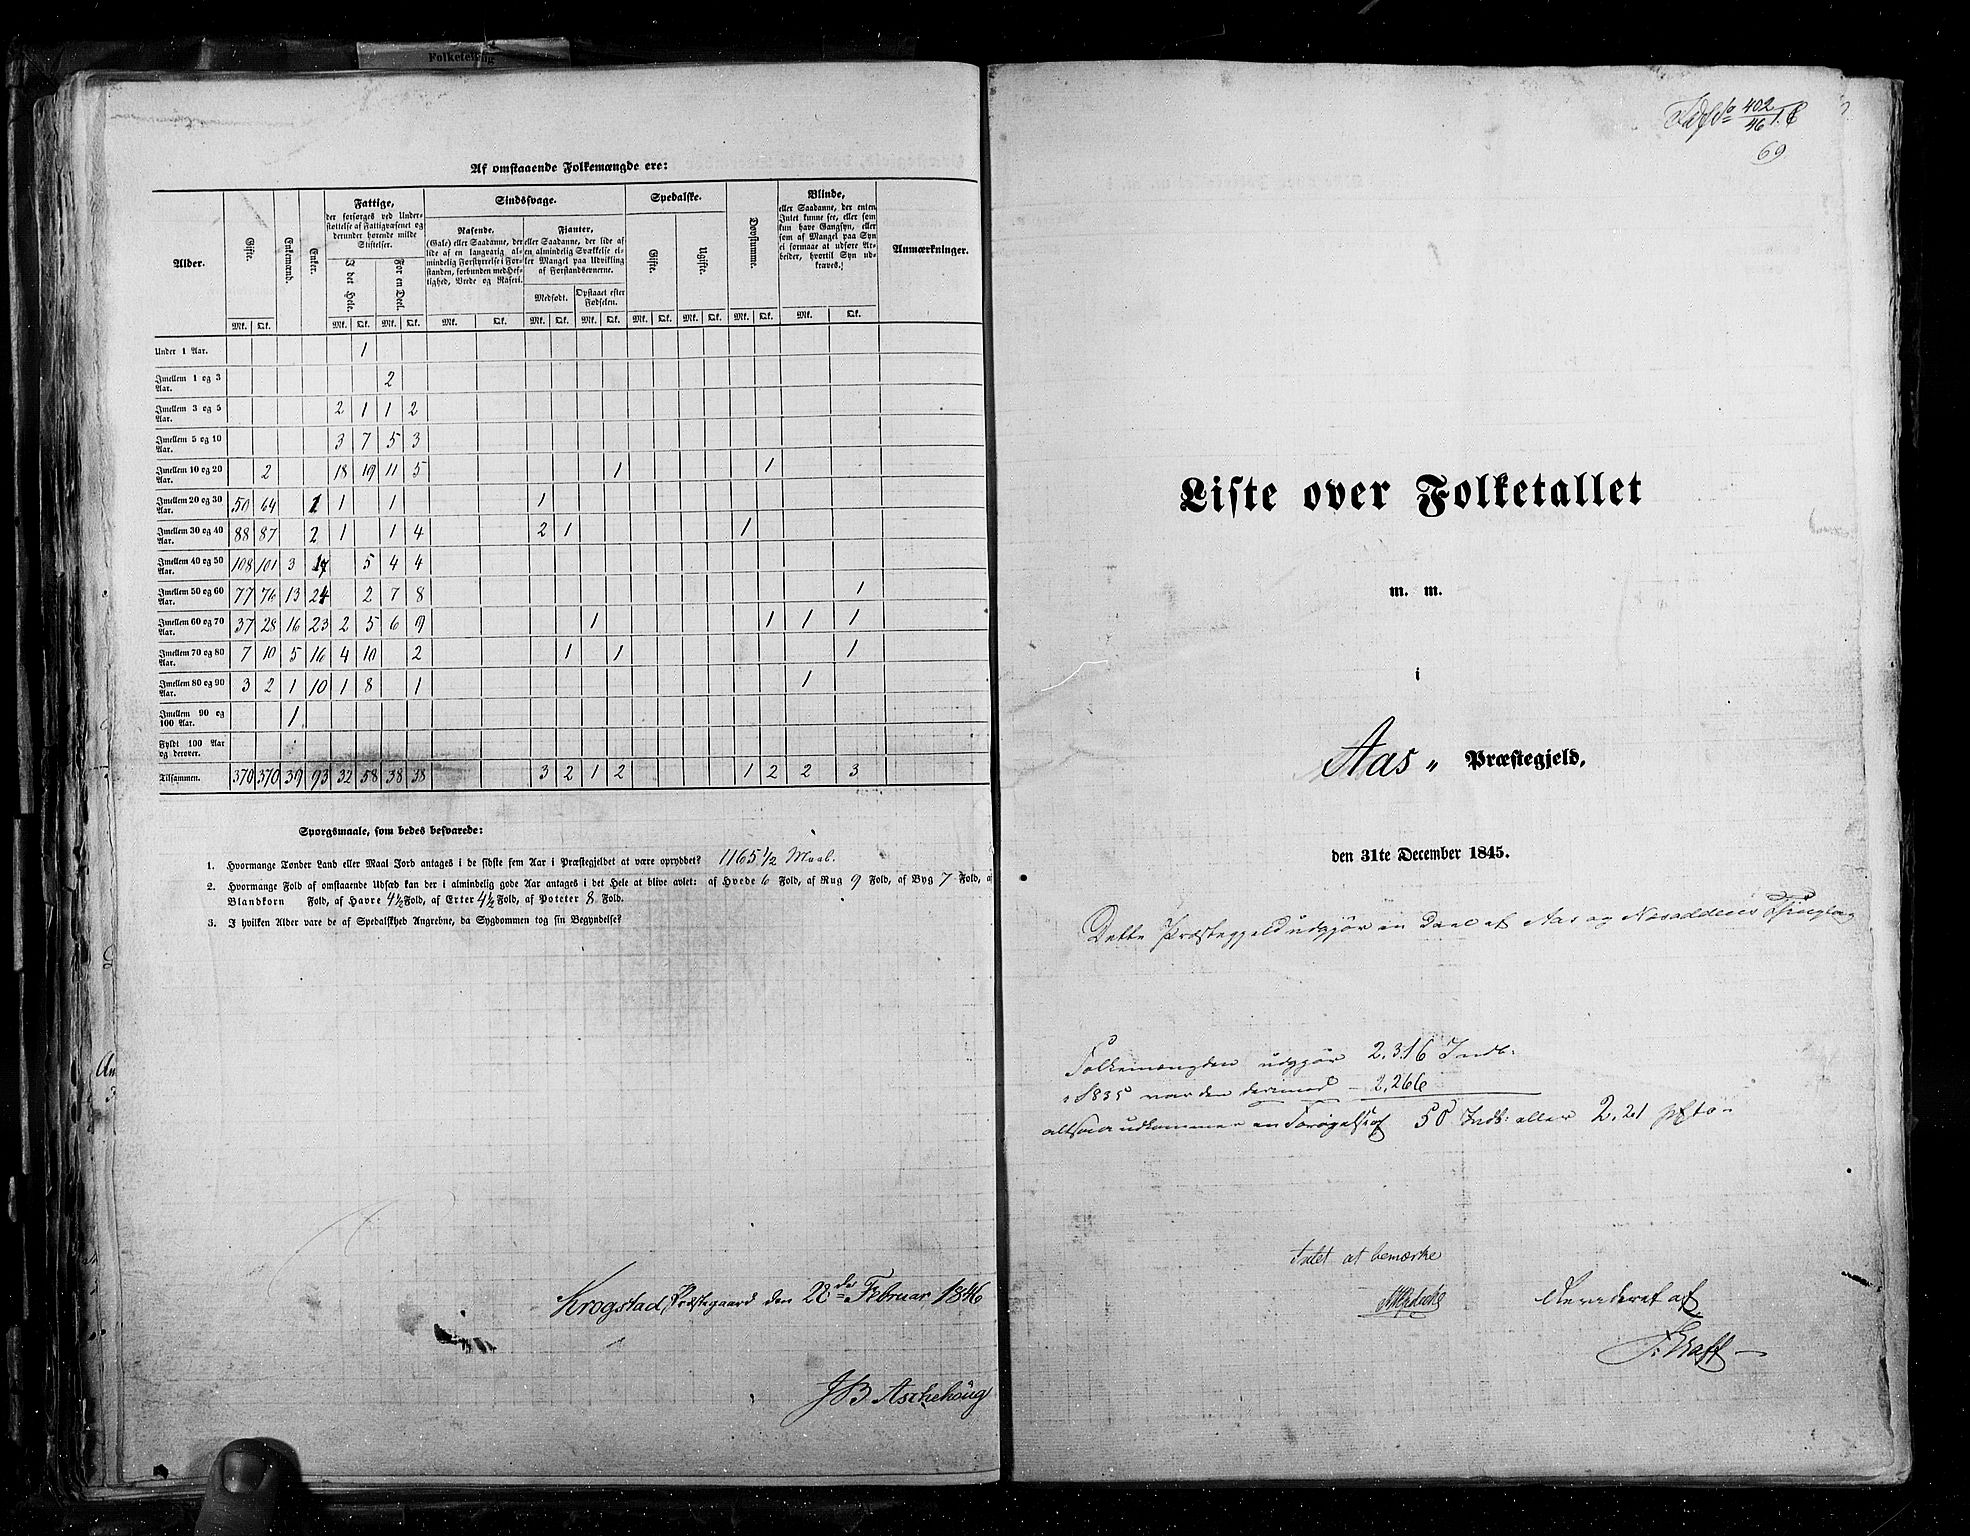 Folketelling
Af omstaaende Folkemængde ere:
Alder. | Gifte. | Enkemænd. | Enker. | Fattige, der forsørges ved Understøttelse af Fattigvæsenet og derunder hørende milde Stiftelser. | Sindssvage. | Spedalske. | Døvstumme. | Blinde, eller Saadanne, der enten Intet kunne see, eller som kun have Gangsyn, eller som af Mangel paa Syn ei formaae at udføre Arbeider, hvortil Syn udkræves. | Anmærkninger.
I det Hele. | For en Deel. | Rasende, (Gale) eller Saadanne, der lide af en langvarig almindelig Forstyrrelse i Forstanden, forbunden med Heftighed, Vrede og Raseri. | Fianter, eller Saadanne, der lide af en almindelig Svækkelse eller Mangel paa Udvikling af Forstandsevnerne. | Gifte. | Ugifte.
Medfødt. | Opstaaet efter Fødselen.
Mk. | Qk. | Mk. | Qk. | Mk. | Qk. | Mk. | Qk. | Mk. | Qk. | Mk. | Qk. | Mk. | Qk. | Mk. | Qk. | Mk. | Qk. | Mk. | Qk.
Under 1 Aar. 1
Imellem 1 og 3 Aar. 2
Imellem 3 og 5 Aar. 2 1 1 2
Imellem 5 og 10 Aar. 3 7 5 3
Imellem 10 og 20 Aar. 2 18 19 11 5 1 1
Imellem 20 og 30 Aar. 50 64 1 1 1 1
Imellem 30 og 40 Aar. 88 87 2 1 1 4 2 1 1
Imellem 40 og 50 Aar. 108 101 3 17 5 4 4
Imellem 50 og 60 Aar. 77 76 13 24 2 7 8 1
Imellem 60 og 70 Aar. 37 28 16 23 2 5 6 9 1 1 1 1
Imellem 70 og 80 Aar. 7 10 5 16 4 10 2 1 1 1
Imellem 80 og 90 Aar. 3 2 1 10 1 8 1 1
Imellem 90 og 100 Aar. 1
Fyldt 100 Aar og derover.
Tilsammen. 370 370 39 93 32 58 38 38 3 2 1 2 1 2 2 3
Spørgsmaale, som bedes besvarede:
1. Hvormange Tønder Land eller Maal Jord antages i de sidste fem Aar i Præstegjeldet at være opryddet? 1165 1/2 Maal.
2. Hvormange Fold af omstaaende Udsæd kan der i almindelig gode Aar antages i det Hele at blive avlet: af Hvede 6 Fold, af Rug 9 Fold, af Byg 7 Fold, af
Blandkorn Fold, af Havre 4½ Fold, af Erter 4½ Fold, af Poteter 8 Fold.
3. I hvilken Alder vare de af Spedalskhed Angrebne, da Sygdommen tog sin Begyndelse?
Krogstad Præstegaard den 28de Februar 1846
JB Aschehoug
402
46
69
Liste over Folketallet
m. m.
i
Aas Præstegjeld,
den 31te December 1845.
Dette Præstegjeld udgjør en Deel af Aas og Næsoddens Thinglag
Folkemængden udgjør 2,316 Indb:
i 1835 var den derimod - 2,266
altsaa udkommer en Forøgelse af 50 Indb: eller 2,21 pCto.
Intet at bemærke
Revideret af